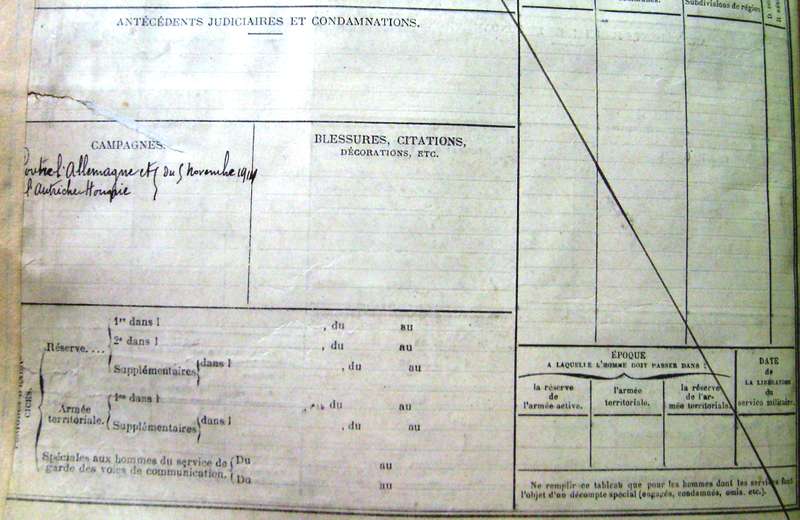 ANTÉCÉDENTS JUDICIAIRES ET CONDAMNATIONS.
Subdivisions de région
CAMPAGNES.
Contre l'Allemagne et { du 5 novembre 1914
l'Autriche Hongrie
BLESSURES, CITATIONS,
DÉCORATIONS, ETC.
CICES.
Réserve....
1re dans l , du au
2e dans l , du au
Supplémentaires dans l , du au
Armée
territoriale.
1re dans l , du au
Supplémentaires dans l , du au
Spéciales aux hommes du service de
garde des voies de communication.
Du au
Du au
ÉPOQUE
A LAQUELLE L'HOMME DOIT PASSER DANS :
la réserve
de
l'armée active.
l'armée
territoriale.
la réserve
de l'ar-
mée territoriale.
DATE
de
LA LIBÉRATION
du
service militaire.
Ne remplir ce tableau que pour les hommes dont les services font
l'objet d'un décompte spécial (engagés, condamnés, omis, etc.).